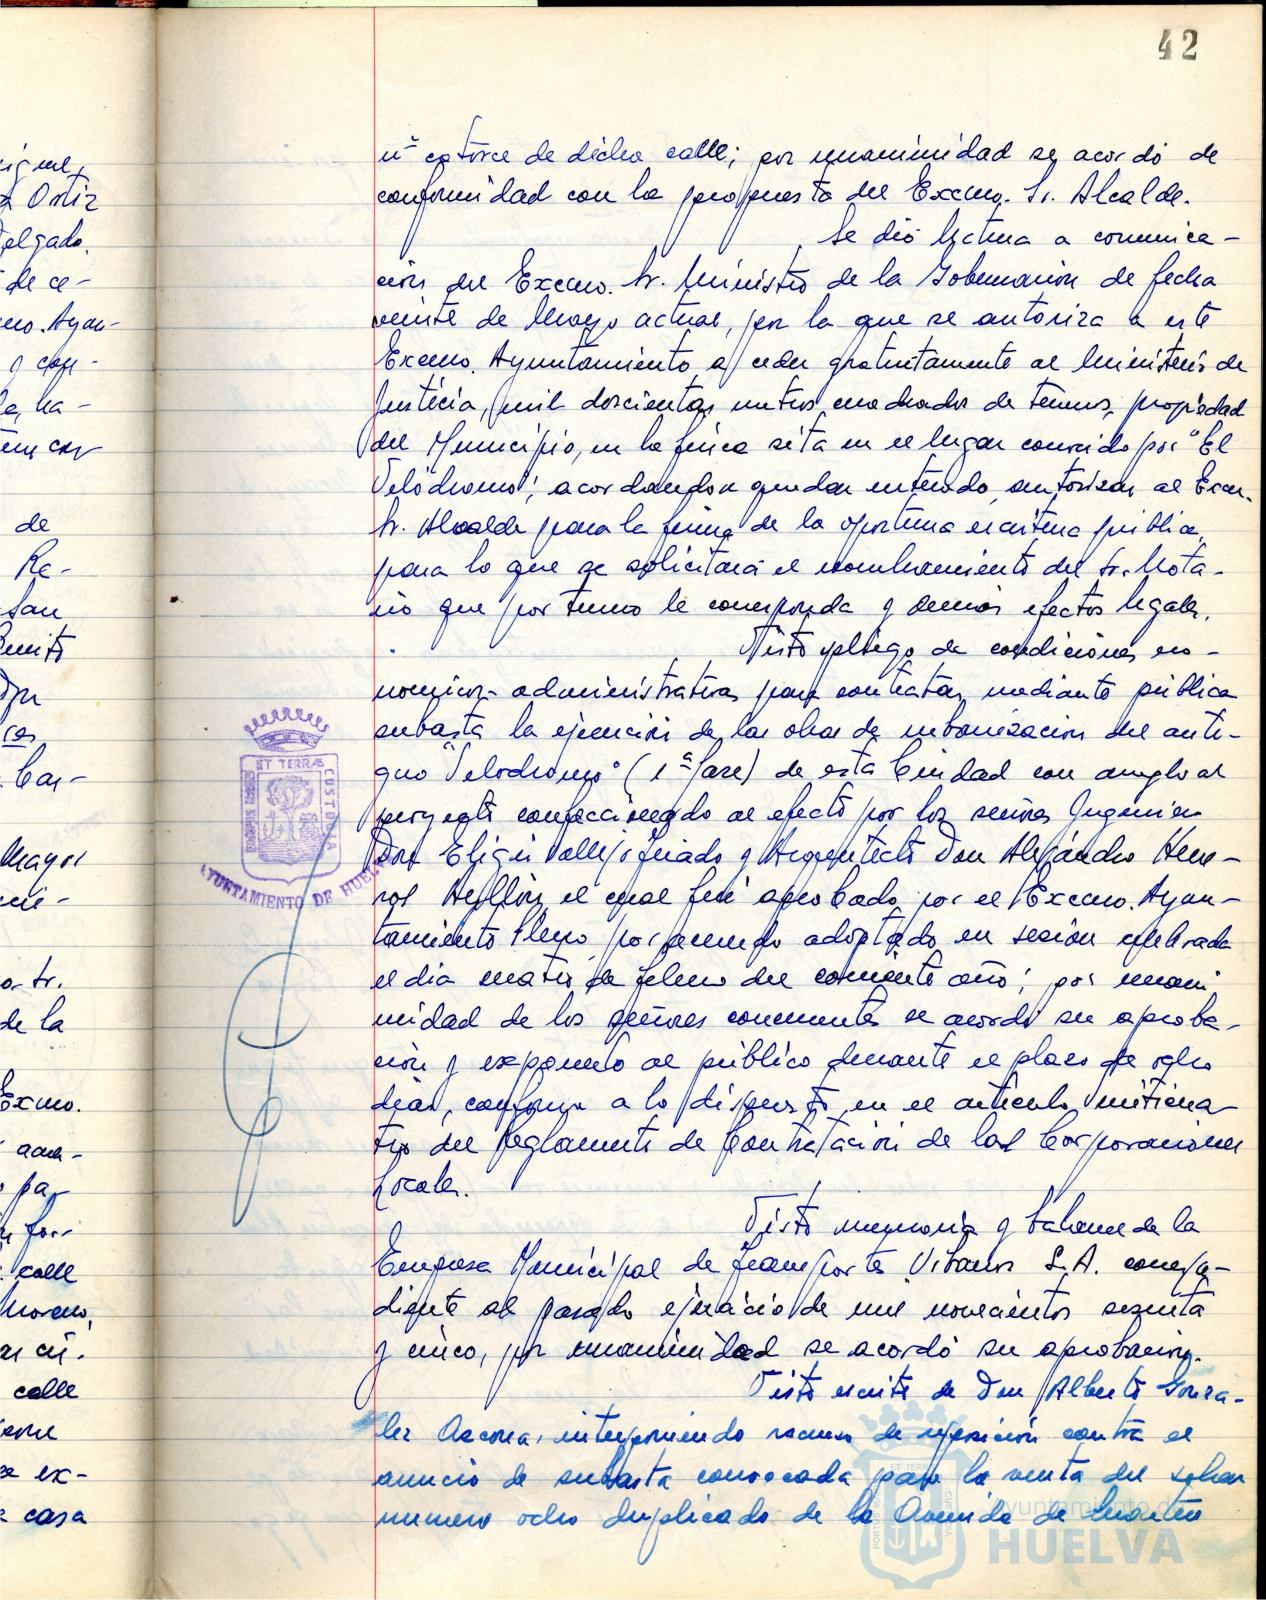 42
nº catorce de dicha calle; por unanimidad se acordó de
conformidad con la propuesta del Excmo. Sr. Alcalde.
Se dió lectura a comunica-
ción del Excmo. Sr. Ministro de la Gobernación de fecha
veinte de Mayo actual, por la que se autoriza a este
Excmo. Ayuntamiento a ceder gratuitamente al Ministerio de
Justicia, mil doscientos metros cuadrados de terreno, propiedad
del Municipio, en la finca sita en el lugar conocido por "El
Velódromo"; acordandose quedar enterado, autorizar al Excmo.
Sr. Alcalde para la firma de la oportuna escritura pública,
para lo que se solicitará el nombramiento del Sr. Nota-
rio que por turno le corresponda y demás efectos legales.
Visto pliego de condiciones eco-
nomicos-administrativas para contratar, mediante pública
subasta la ejecución de las obras de urbanización del anti-
guo "Velodromo" (1ª fase) de esta Ciudad con arreglo al
proyecto confeccionado al efecto por los señores Ingeniero
Don Eligio Vallejo y Arquitecto Don Alejandro Herre-
ros el cual fué aprobado por el Excmo. Ayun-
tamiento Pleno, por acuerdo adoptado en sesión celebrada
el día cuatro de febrero del corriente año; por unani
midad de los señores concurrentes se acordó su aproba-
ción y exponerlo al público durante el plazo de ocho
días, conforme a lo dispuesto en el artículo veinticua-
tro del Reglamento de Contratación de las Corporaciones
Locales.
Visto memoria y balance de la
Empresa Municipal de Transportes Urbanos S.A. correspon-
diente al pasado ejercicio de mil novecientos sesenta
y cinco, por unanimidad se acordó su aprobación.
Visto escrito de Don Alberto Gonzá-
lez Azcona, interponiendo recurso de reposición contra el
anuncio de subasta convocada para la venta del solar
numero ocho duplicado de la Avenida de Martín
ET TERRAE CUSTODIA
AYUNTAMIENTO DE HUELVA
Ortiz
Delgado.
de ce-
mo. Ayun-
ha-
de
Re-
San
Benito
Mayor
de la
Excmo.
pa-
calle
Moreno,
calle
ex-
casa
Ayuntamiento de
HUELVA